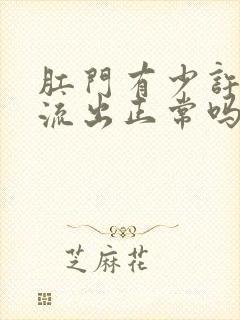 肛門有少許
流出正常吗
芝麻花